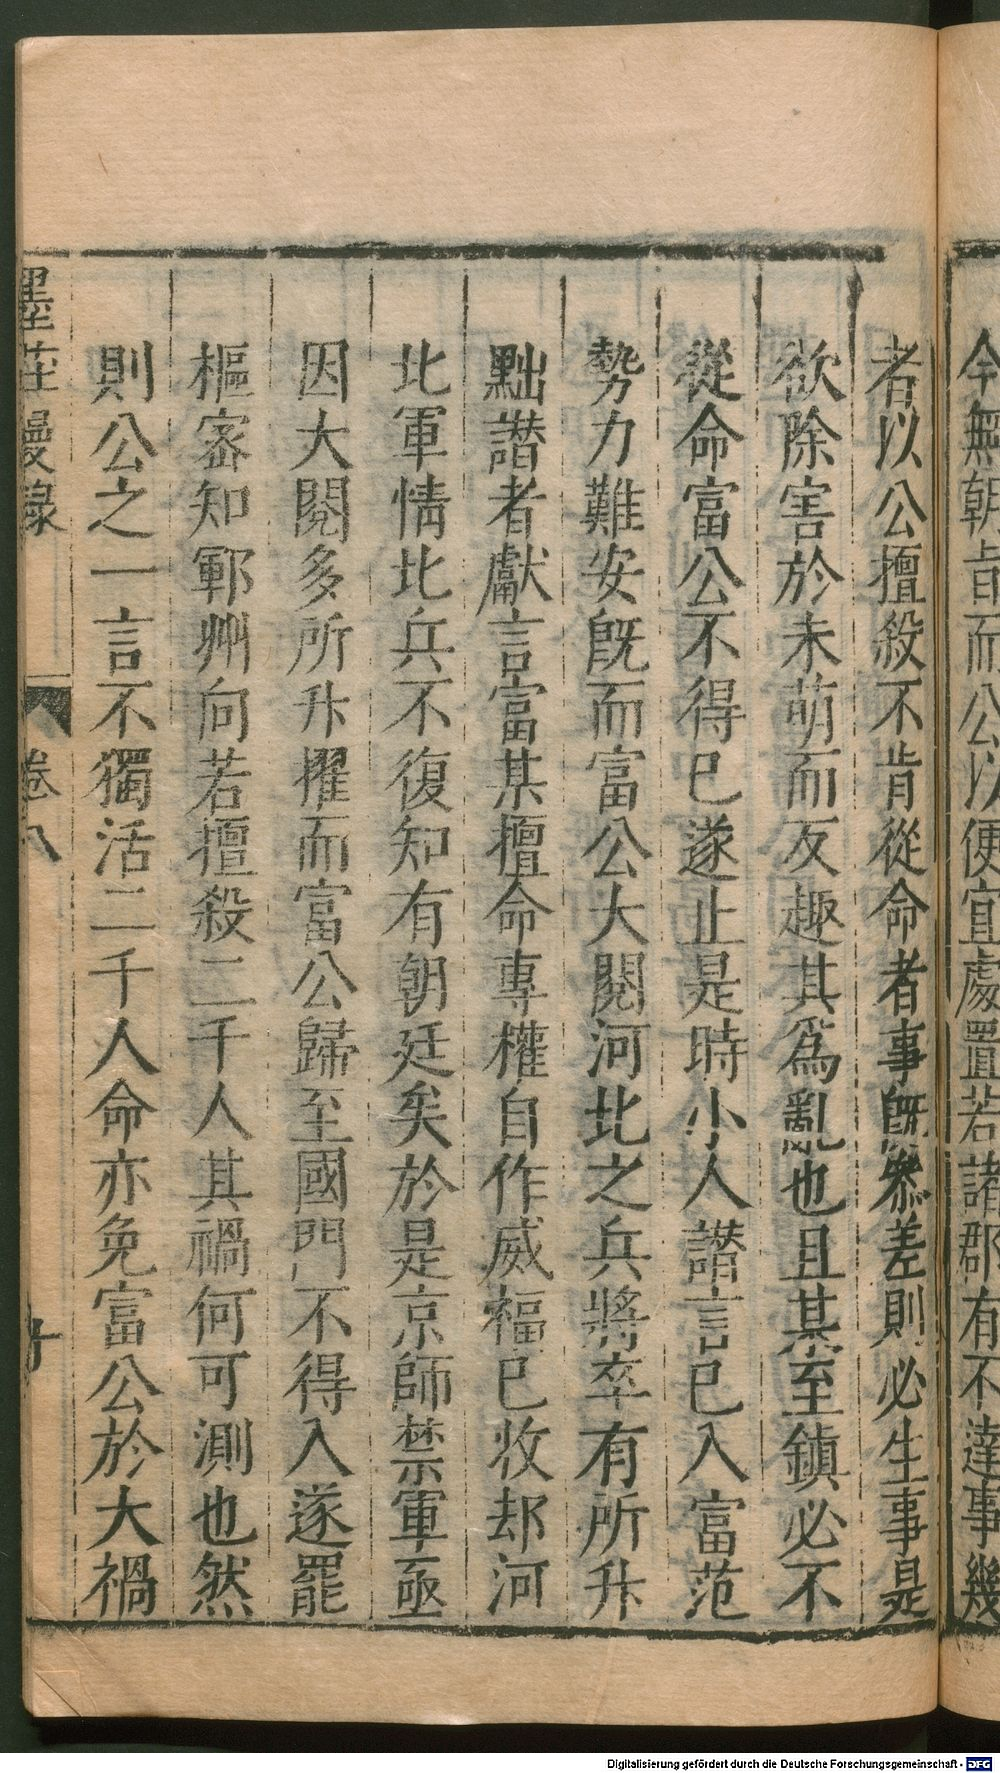 今無朝旨而公以便宜處置若諸郡有不達事幾
者以公擅殺不肯從命者事旣叅差則必生事是
欲除害於未萌而反趣其爲亂也且某至鎮必不
從命富公不得已遂止是時小人讃言已入富范
勢力難安旣而富公大閱河北之兵將卒有所升
黜譛者獻言富某擅命專權自作威福已收却河
北軍情北兵不復知有朝廷矣於是京師禁軍亟
因大閱多所升擢而富公歸至國門不得入遂罷
樞密知鄆州向若擅殺二千人其禍何可測也然
則公之一言不獨活二千人命亦免富公於大禍
墨莊漫錄
卷八
Digitalisierung gefördert durch die Deutsche Forschungsgemeinschaft - DFG